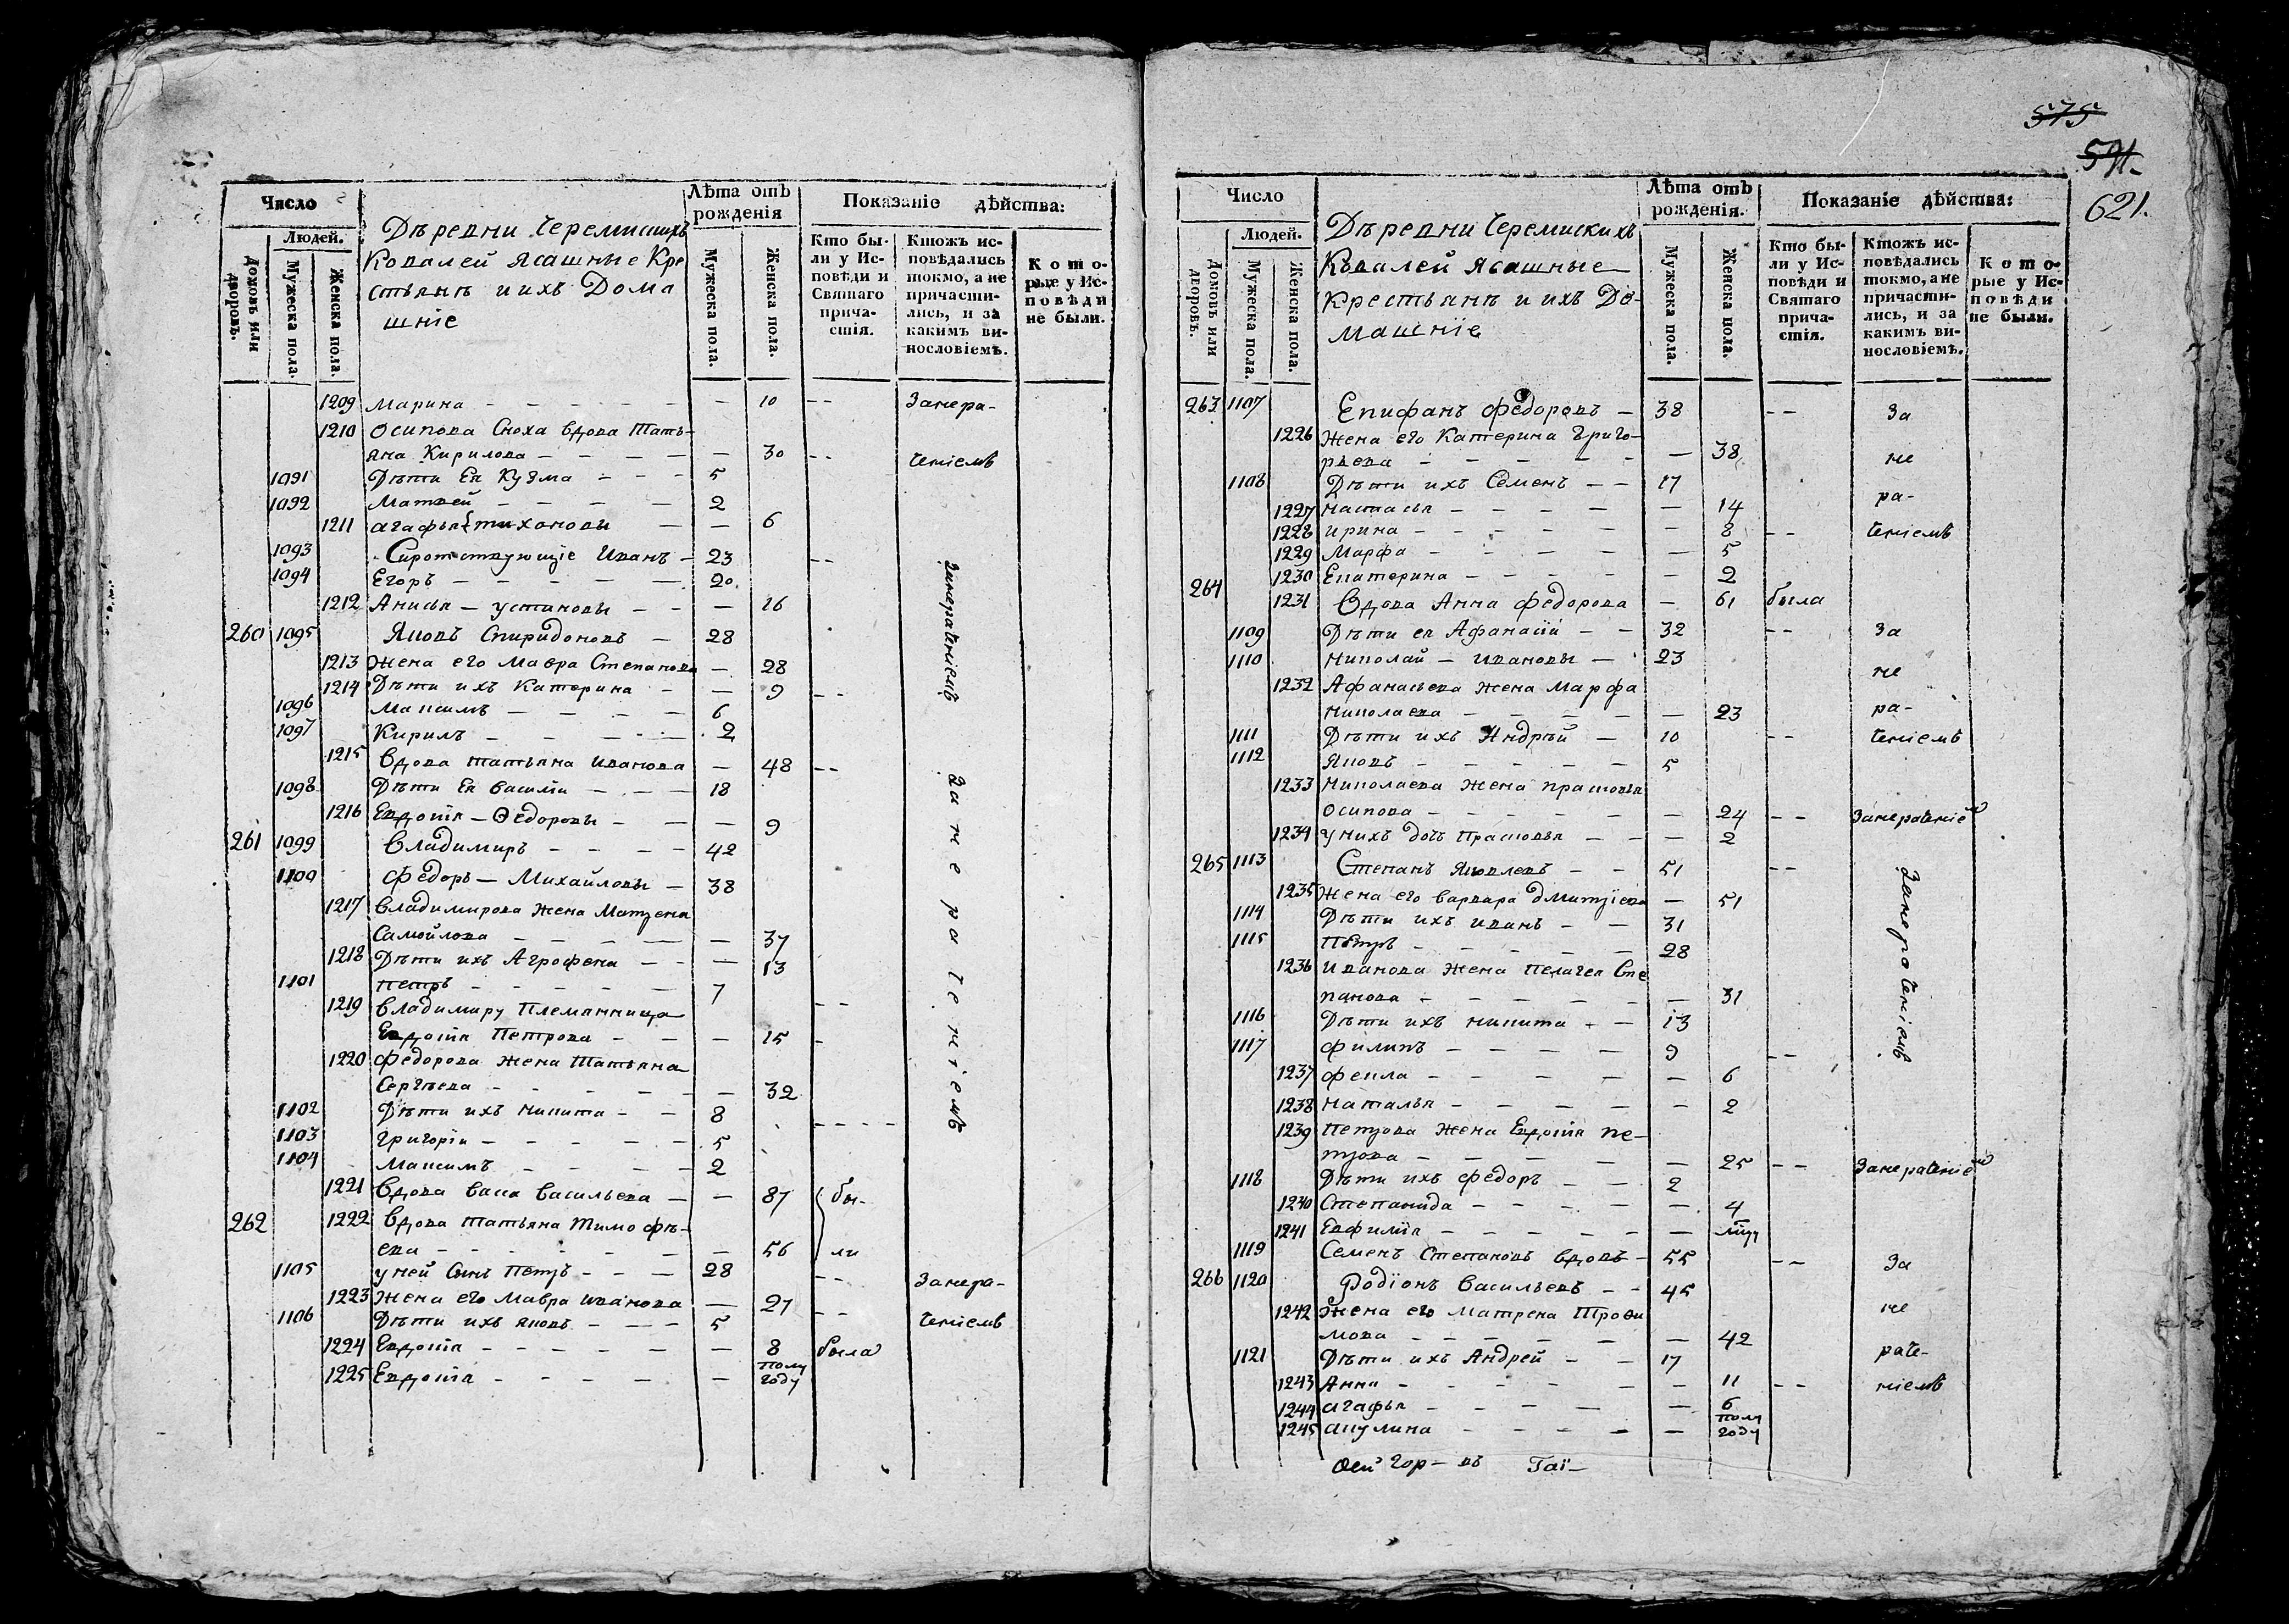 Число
Людей.
Домовъ или дворовъ.
Мужеска пола.
Женска пола.
Деревни Черемишкъ
Ковалей Ясашные Кре
стьянѣ и ихъ Дома
шніе
Лѣта отъ рожденія
Мужеска пола.
Женска пола.
Показаніе дѣйства:
Кто бы-
ли у Ис-
повѣди и
Святаго
прича-
стія.
Ктожъ ис-
повѣдались
токмо, а не
причасти-
лись, и за
какимъ ви-
нословіемъ.
Кото-
рые у Ис-
повѣди
не были.
1209 Марина — — 10 - - Занера-
1210 Осипова Сноха вдова Татья-
яна Кирилова — — 30 - -
чениемъ
1091 Дѣти Ея Кузма — 5
1092 Матвей — 2
1211 агафья тихоновы — — 6
1093 Сиротствующіе Иванъ — 23 - -
1094 Егоръ — 20.
1212 Анисья — устиновы — — 16
занерачениемъ
260 1095 Яковъ Спиридоновъ — 28
1213 Жена его Мавра Степанова — 28
1214 Дѣти ихъ Катерина — — 9 - -
1096 Максимъ — 6
1097 Кирилъ — 2
1215 Вдова татьяна иванова — 48 - -
1098 Дѣти Ея василіи — 18
1216 Евдокія — Ѳедоровы — — 9
занерачениемъ
261 1099 Владимиръ — 42
1100 Федоръ — Михайловы — 38
1217 Владимирова жена Матрена
Самойлова — — 37
1218 Дѣти ихъ Агрофена — — 13
1101 петръ — 7
1219 Владимиру Племянница - -
Евдокія Петрова — — 15 -
1220 Федорова жена Татьяна
Сергѣева — — 32
1102 Дѣти ихъ никита — 8
1103 григоріи — 5
1104 Максимъ — 2
1221 Вдова васа васильева — — 87 бы-
262 1222 Вдова татьяна тимофѣ-
ева — — 56 ли
1105 у ней Сынъ Петръ — 28 - - Занера-
1223 Жена его Мавра иванова — 27 - -
1106 Дѣти ихъ яковъ — 5 чениемъ
1224 Евдокія — — 8 была
1225 Евдокія — — полу
году
575
591.
621.
Число
Людей.
Домовъ или дворовъ.
Мужеска пола.
Женска пола.
Деревни Черемискихъ
Ковалей ясашные
Крестьянѣ и ихъ До-
машніе
Лѣта отъ рожденія.
Мужеска пола.
Женска пола.
Показаніе дѣйства:
Кто бы-
ли у Ис-
повѣди и
Святаго
прича-
стія.
Ктожъ ис-
повѣдались
токмо, а не
причасти-
лись, и за
какимъ ви-
нословіемъ.
Кото-
рые у Ис-
повѣди
не были.
263 1107 Епифанъ Федоровъ — 38 - - За
1226 Жена его Катерина григо-
рьева — — 38 не
1108 Дѣти ихъ Семенъ — 17
ра-
1227 настасья — — 14
1228 ирина — — 8 - - чениемъ
1229 Марфа — — 5
1230 Екатерина — — 2
264 1231 Вдова Анна Федорова — 61 была
1109 Дѣти ея Афанасій — 32 - - За
1110 николай — ивановы — 23
не
1232 Афанасьева жена Марфа
николаева — — 23 ра-
1111 Дѣти ихъ Андрѣй — 10 - - чениемъ
1112 Яковъ — 5
1233 николаева жена прасковья
осипова — — 24 - - Занерачение
1234 у нихъ дочь Прасковья — — 2
265 1113 Степанъ Яковлевъ — 51 - -
1235 Жена его варвара дмитріева — 51
1114 Дѣти ихъ иванъ — 31
1115 Петръ — 28
1236 иванова жена Пелагея Сте
панова — — 31
1116 Дѣти ихъ никита — 13
1117 филипъ — 9 - -
1237 фекла — — 6
1238 наталья — — 2
занерачениемъ
1239 петрова жена Евдокія пе-
трова — — 25 - - Занерачение
1118 Дѣти ихъ Федоръ — 2
1240 Степанида — — 4
1241 Евфимія — —
1119 Семенъ Степановъ вдовъ — 55 - - За
266 1120 Родіонъ Васильевъ — 45
1242 Жена его Матрена Трофи не
мова — — 42
1121 Дѣти ихъ Андрей — 17 раче-
1243 Анна — — 11 - - ніемъ
1244 агафья — — 6
1245 акулина — — полу
году